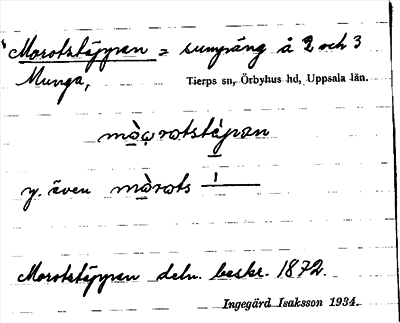 Morotstäppan = sumpäng å 2 och 3
Munga,
Tierps sn, Örbyhus hd, Uppsala län.
mòọrotstɛ̀pan
y. även mòrots
Morotstäppan deln. beskr. 1872.
Ingegärd Isaksson 1934.